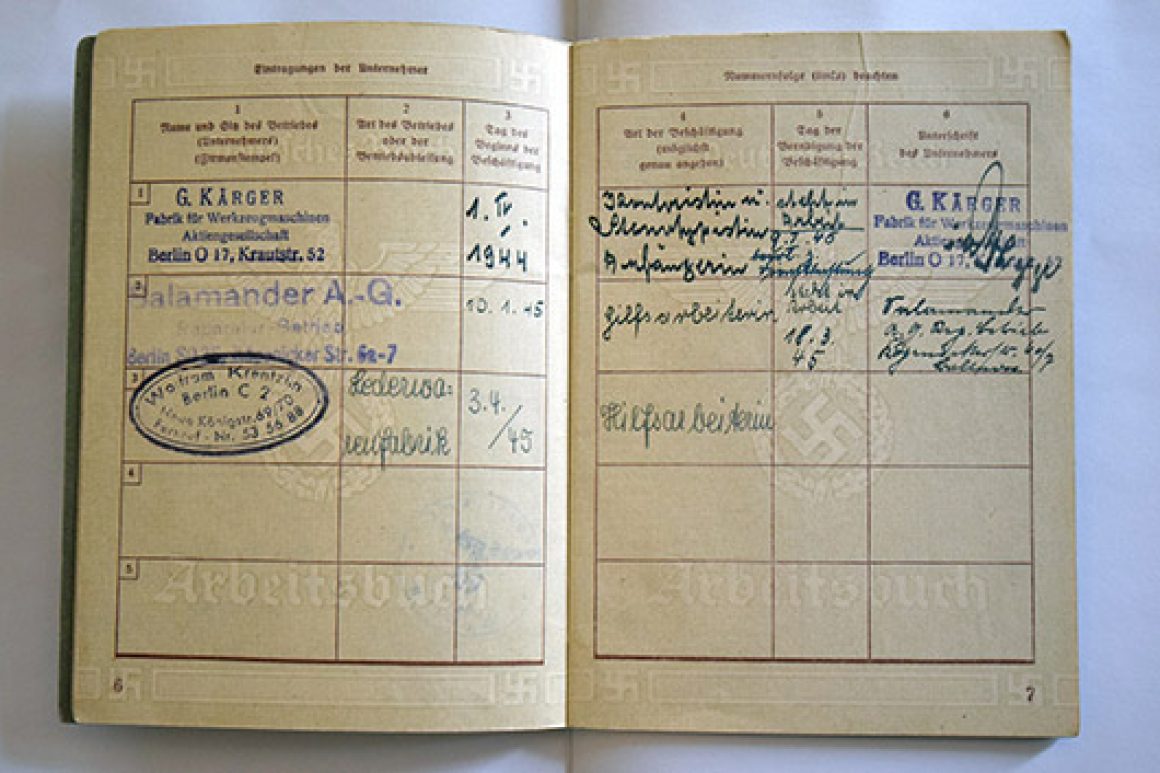 Eintragungen der Unternehmer
1
Name und Sitz des Betriebes
(Unternehmers)
(Firmenstempel)
2
Art des Betriebes
oder der
Betriebsabteilung
3
Tag des
Beginns der
Beschäftigung
1
G. KÄRGER
Fabrik für Werkzeugmaschinen
Aktiengesellschaft
Berlin O 17, Krautstr. 52
1. IV.
1944
2
Salamander A.-G.
Reparatur-Betrieb
Berlin Str. 6a-7
10. 1. 45
3
Wolfram Krentzlin
Berlin C 2
Neue Königstr. 69/70
Fernruf-Nr. 53 56 88
Lederwa=
renfabrik
3.4./45
4
5
Arbeitsbuch
6
Nummernfolge (links) beachten
4
Art der Beschäftigung
(möglichst
genau angeben)
5
Tag der
Beendigung der
Beschäftigung
6
Unterschrift
des Unternehmers
Kontoristin u.
Stenotypistin
Anfängerin
steht in
Arbeit
G. KÄRGER
Fabrik für Werkzeugmaschinen
Berlin O 17,
Hilfsarbeiterin
18. 3.
45
Salamander
Hilfsarbeiterin
Deutsches Reich
Arbeitsbuch
7